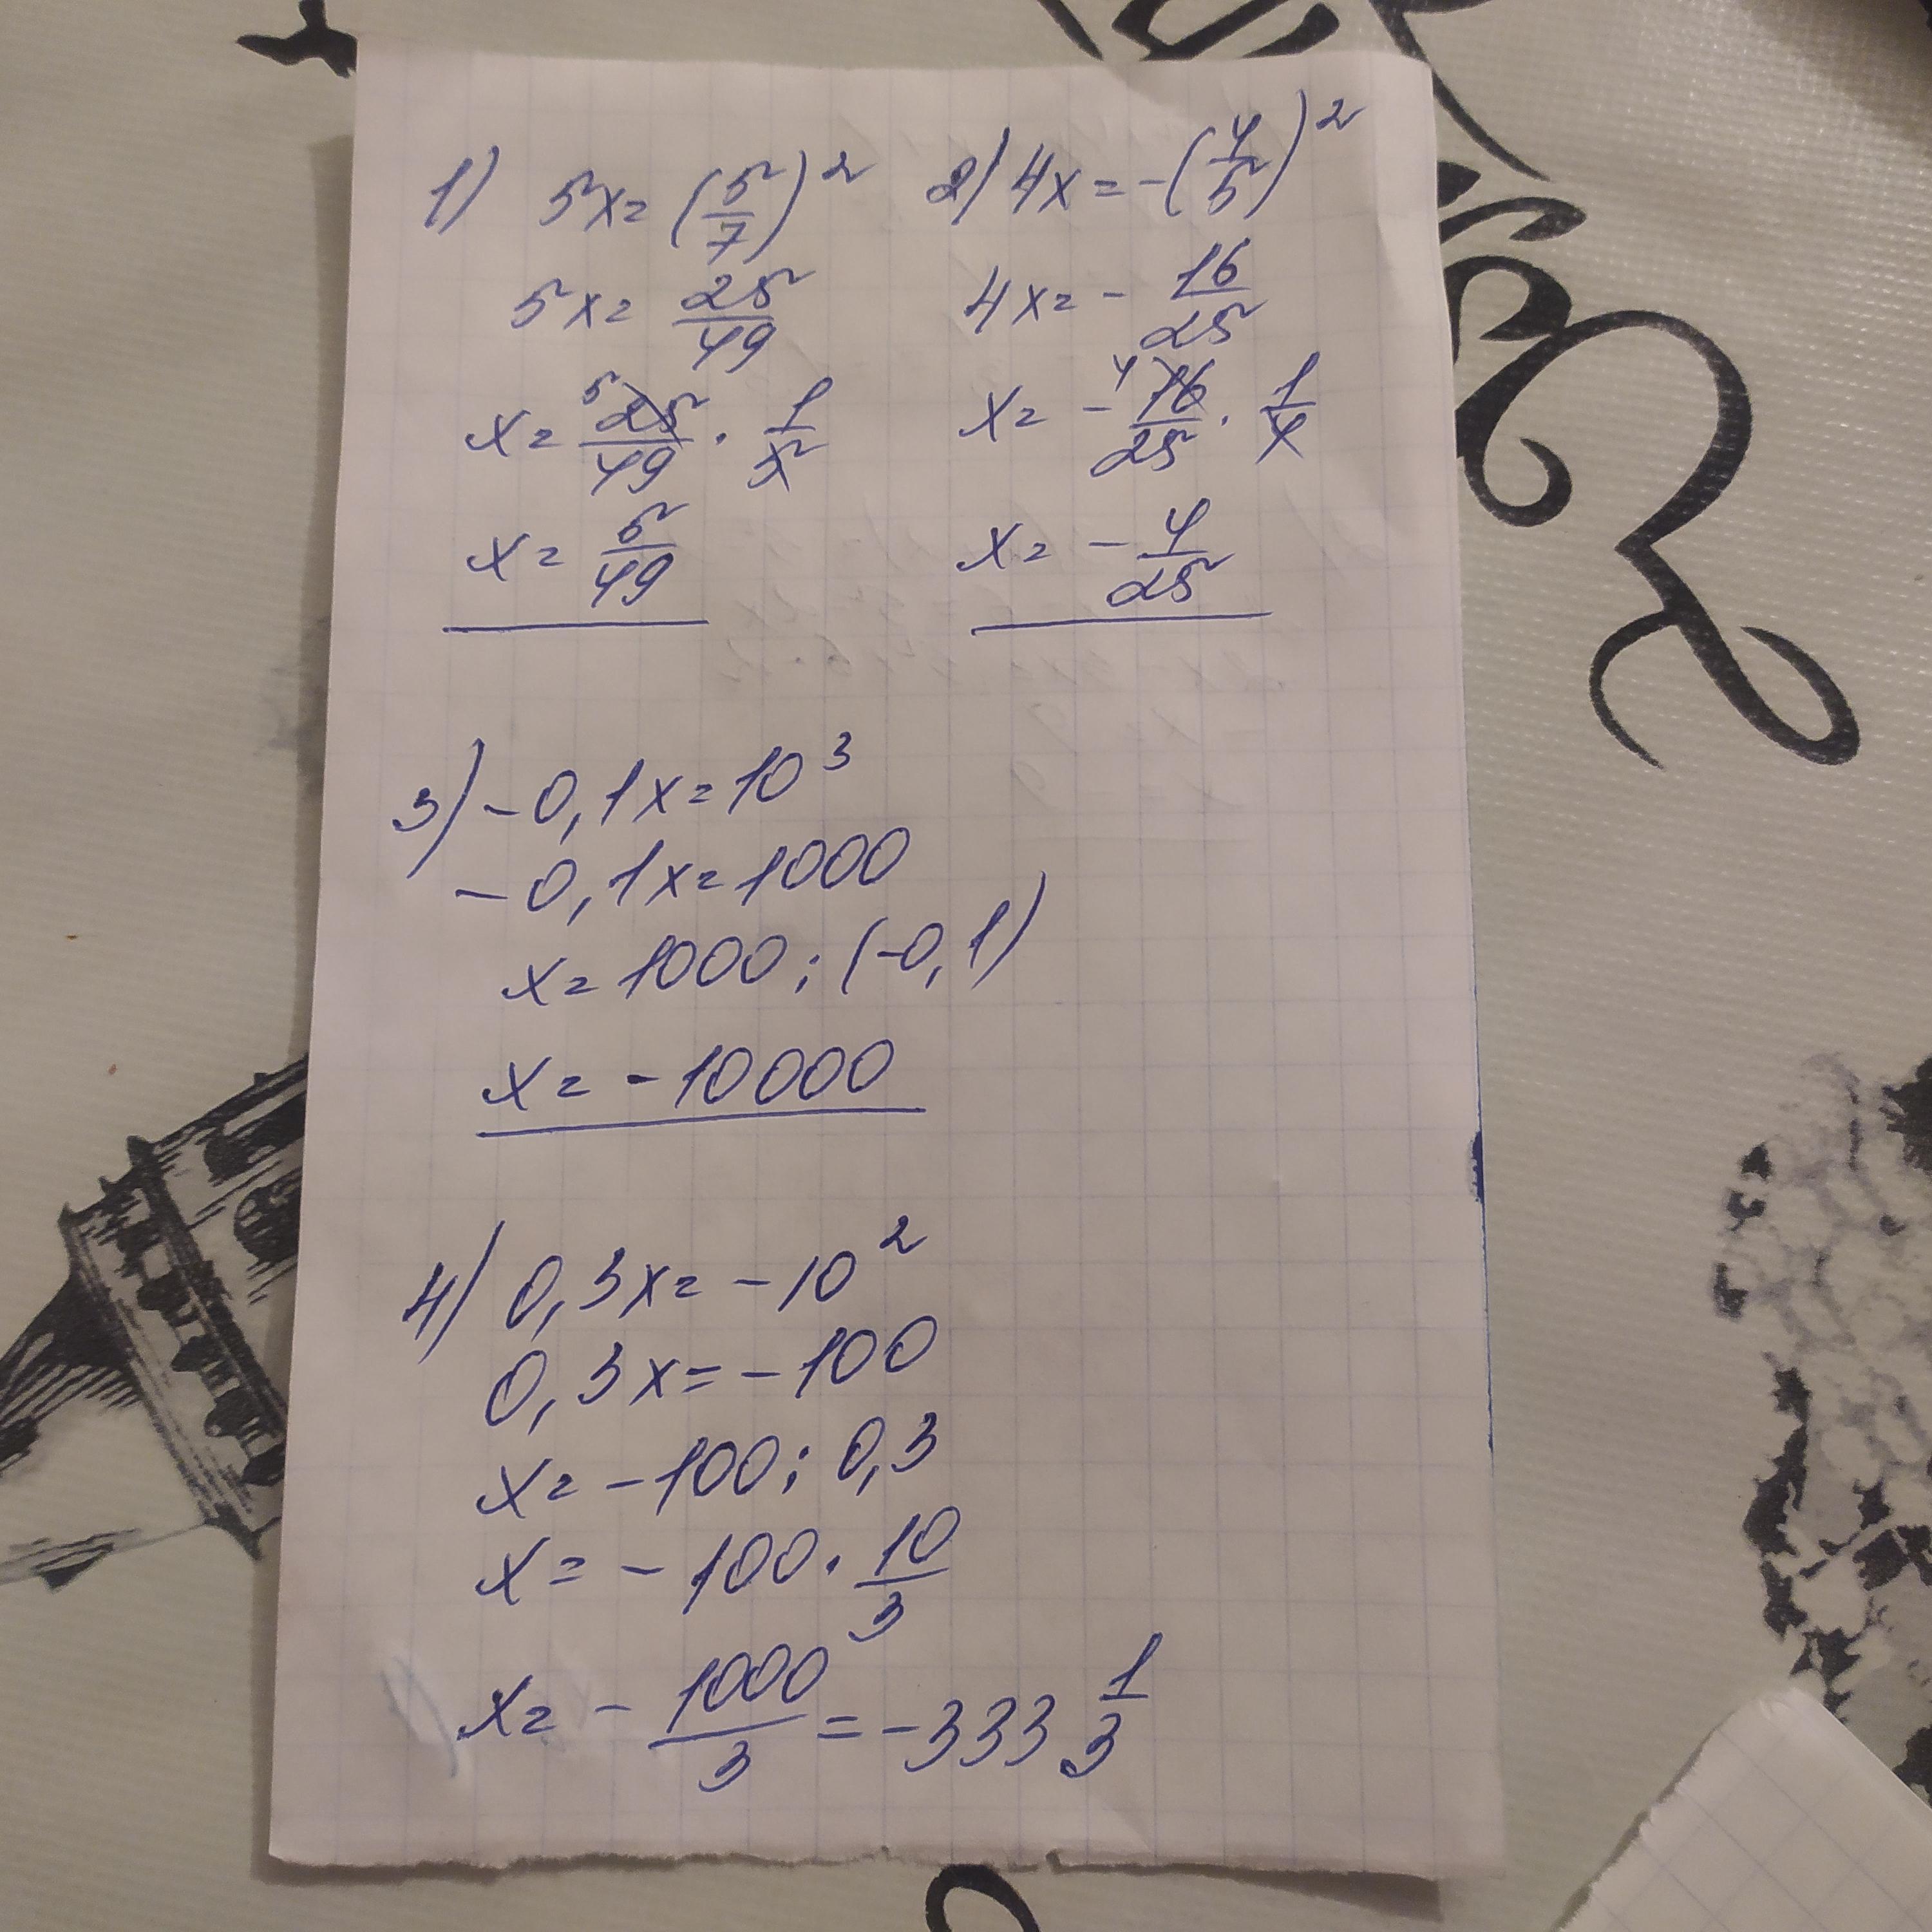 1) 5x = (5/7)²
5x = 25/49
x = 25/49 · 1/5
5
x = 5/49
2) 4x = -(4/5)²
4x = - 16/25
x = - 16/25 · 1/4
4
x = - 4/25
3) -0,1x = 10³
-0,1x = 1000
x = 1000 : (-0,1)
x = -10000
4) 0,3x = -10²
0,3x = -100
x = -100 : 0,3
x = -100 · 10/3
x = - 1000/3 = -333 1/3